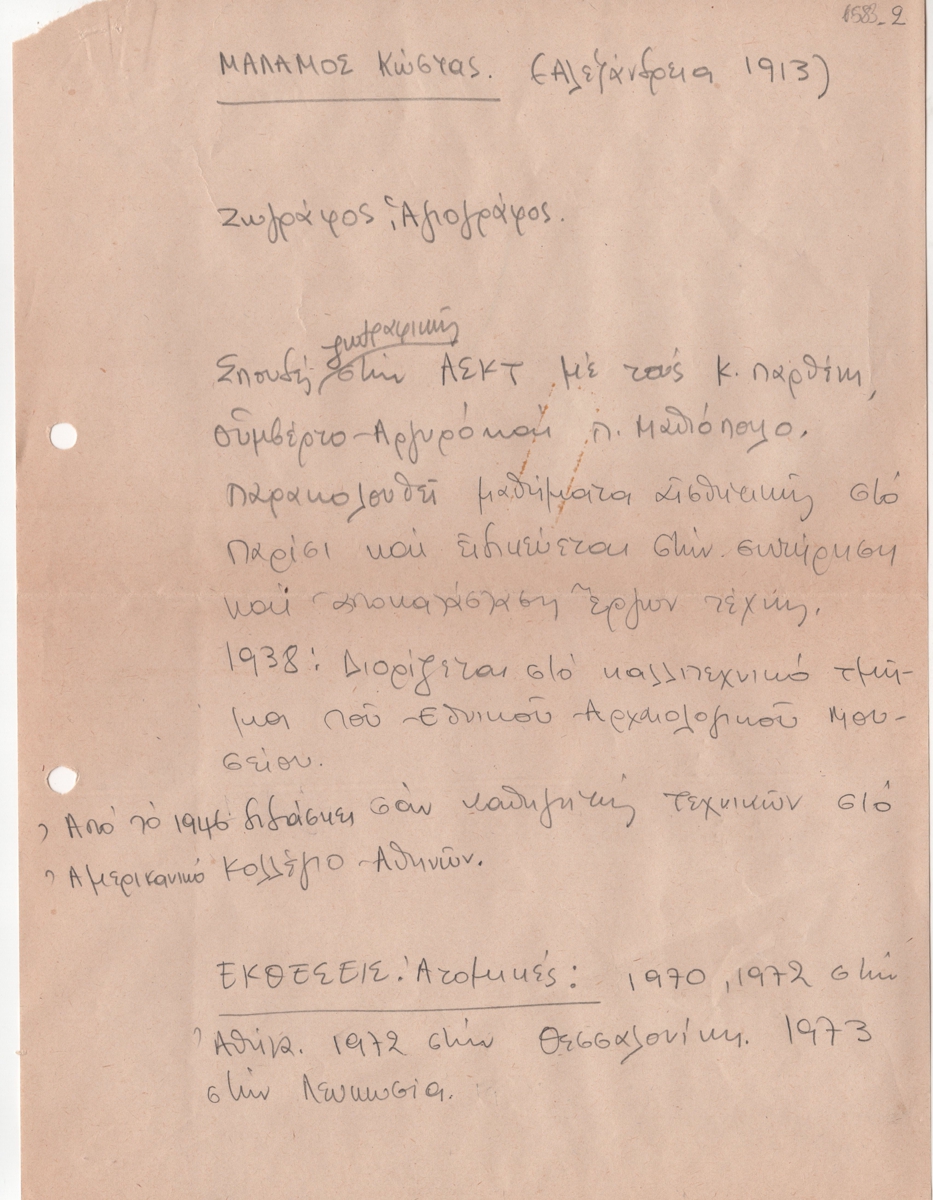 1583_2
ΜΑΛΑΜΟΣ Κώστας. (Ἀλεξάνδρεια 1913)
Ζωγράφος, Ἁγιογράφος.
ζωγραφικῆς
Σπουδές στήν ΑΣΚΤ μέ τούς Κ. Παρθένη,
Οὐμβέρτο Ἀργυρό καί Π. Μαθιόπουλο.
Παρακολουθεῖ μαθήματα αἰσθητικῆς στό
Παρίσι καί εἰδικεύεται στήν συντήρηση
καί ἀποκατάσταση ἔργων τέχνης.
1938: Διορίζεται στό καλλιτεχνικό τμῆ-
μα τοῦ Ἐθνικοῦ Ἀρχαιολογικοῦ Μου-
σείου.
Ἀπό τό 1946 διδάσκει σάν καθηγητής τεχνικῶν στό
Ἀμερικανικό Κολλέγιο Ἀθηνῶν.
ΕΚΘΕΣΕΙΣ: Ἀτομικές: 1970, 1972 στήν
Ἀθήνα. 1972 στήν Θεσσαλονίκη. 1973
στήν Λευκωσία.